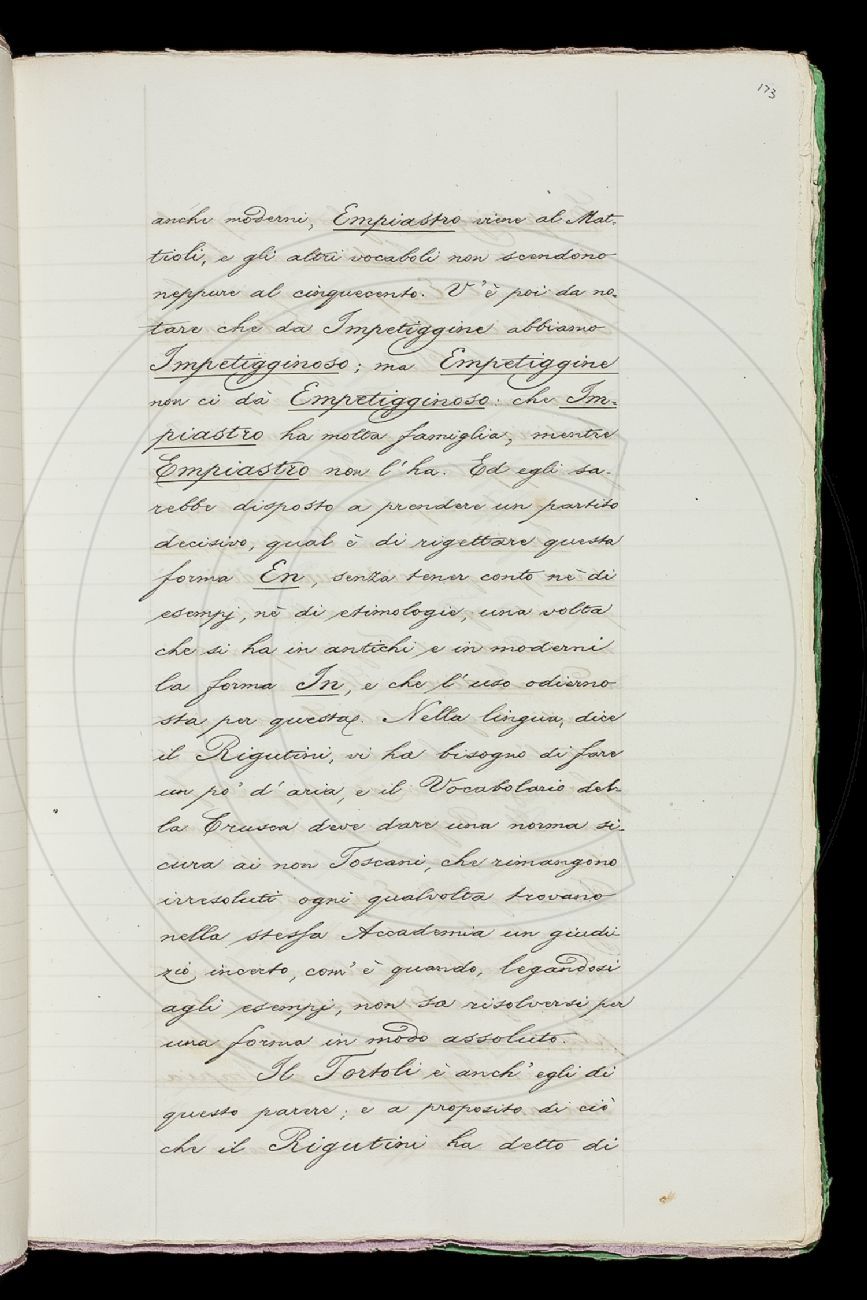 173
anche moderni, Empiastro viene al Mat-
tioli, e gli altri vocaboli non scendono
neppure al cinquecento. V'è poi da no-
tare che da Impetiggine abbiamo
Impetigginoso; ma Empetiggine
non ci dà Empetigginoso: che Im-
piastro ha molta famiglia, mentre
Empiastro non l'ha. Ed egli sa-
rebbe disposto a prendere un partito
decisivo, qual è di rigettare questa
forma En, senza tener conto nè di
esempj, nè di etimologie, una volta
che si ha in antichi e in moderni
la forma In, e che l'uso odierno
sta per questa. Nella lingua, dice
il Rigutini, vi ha bisogno di fare
un po' d'aria, e il Vocabolario del-
la Crusca deve dare una norma si-
cura ai non Toscani, che rimangono
irresoluti ogni qualvolta trovano
nella stessa Accademia un giudi-
zio incerto, com'è quando, legandosi
agli esempj, non sa risolversi per
una forma in modo assoluto.
Il Tortoli è anch'egli di
questo parere; e a proposito di ciò
che il Rigutini ha detto di